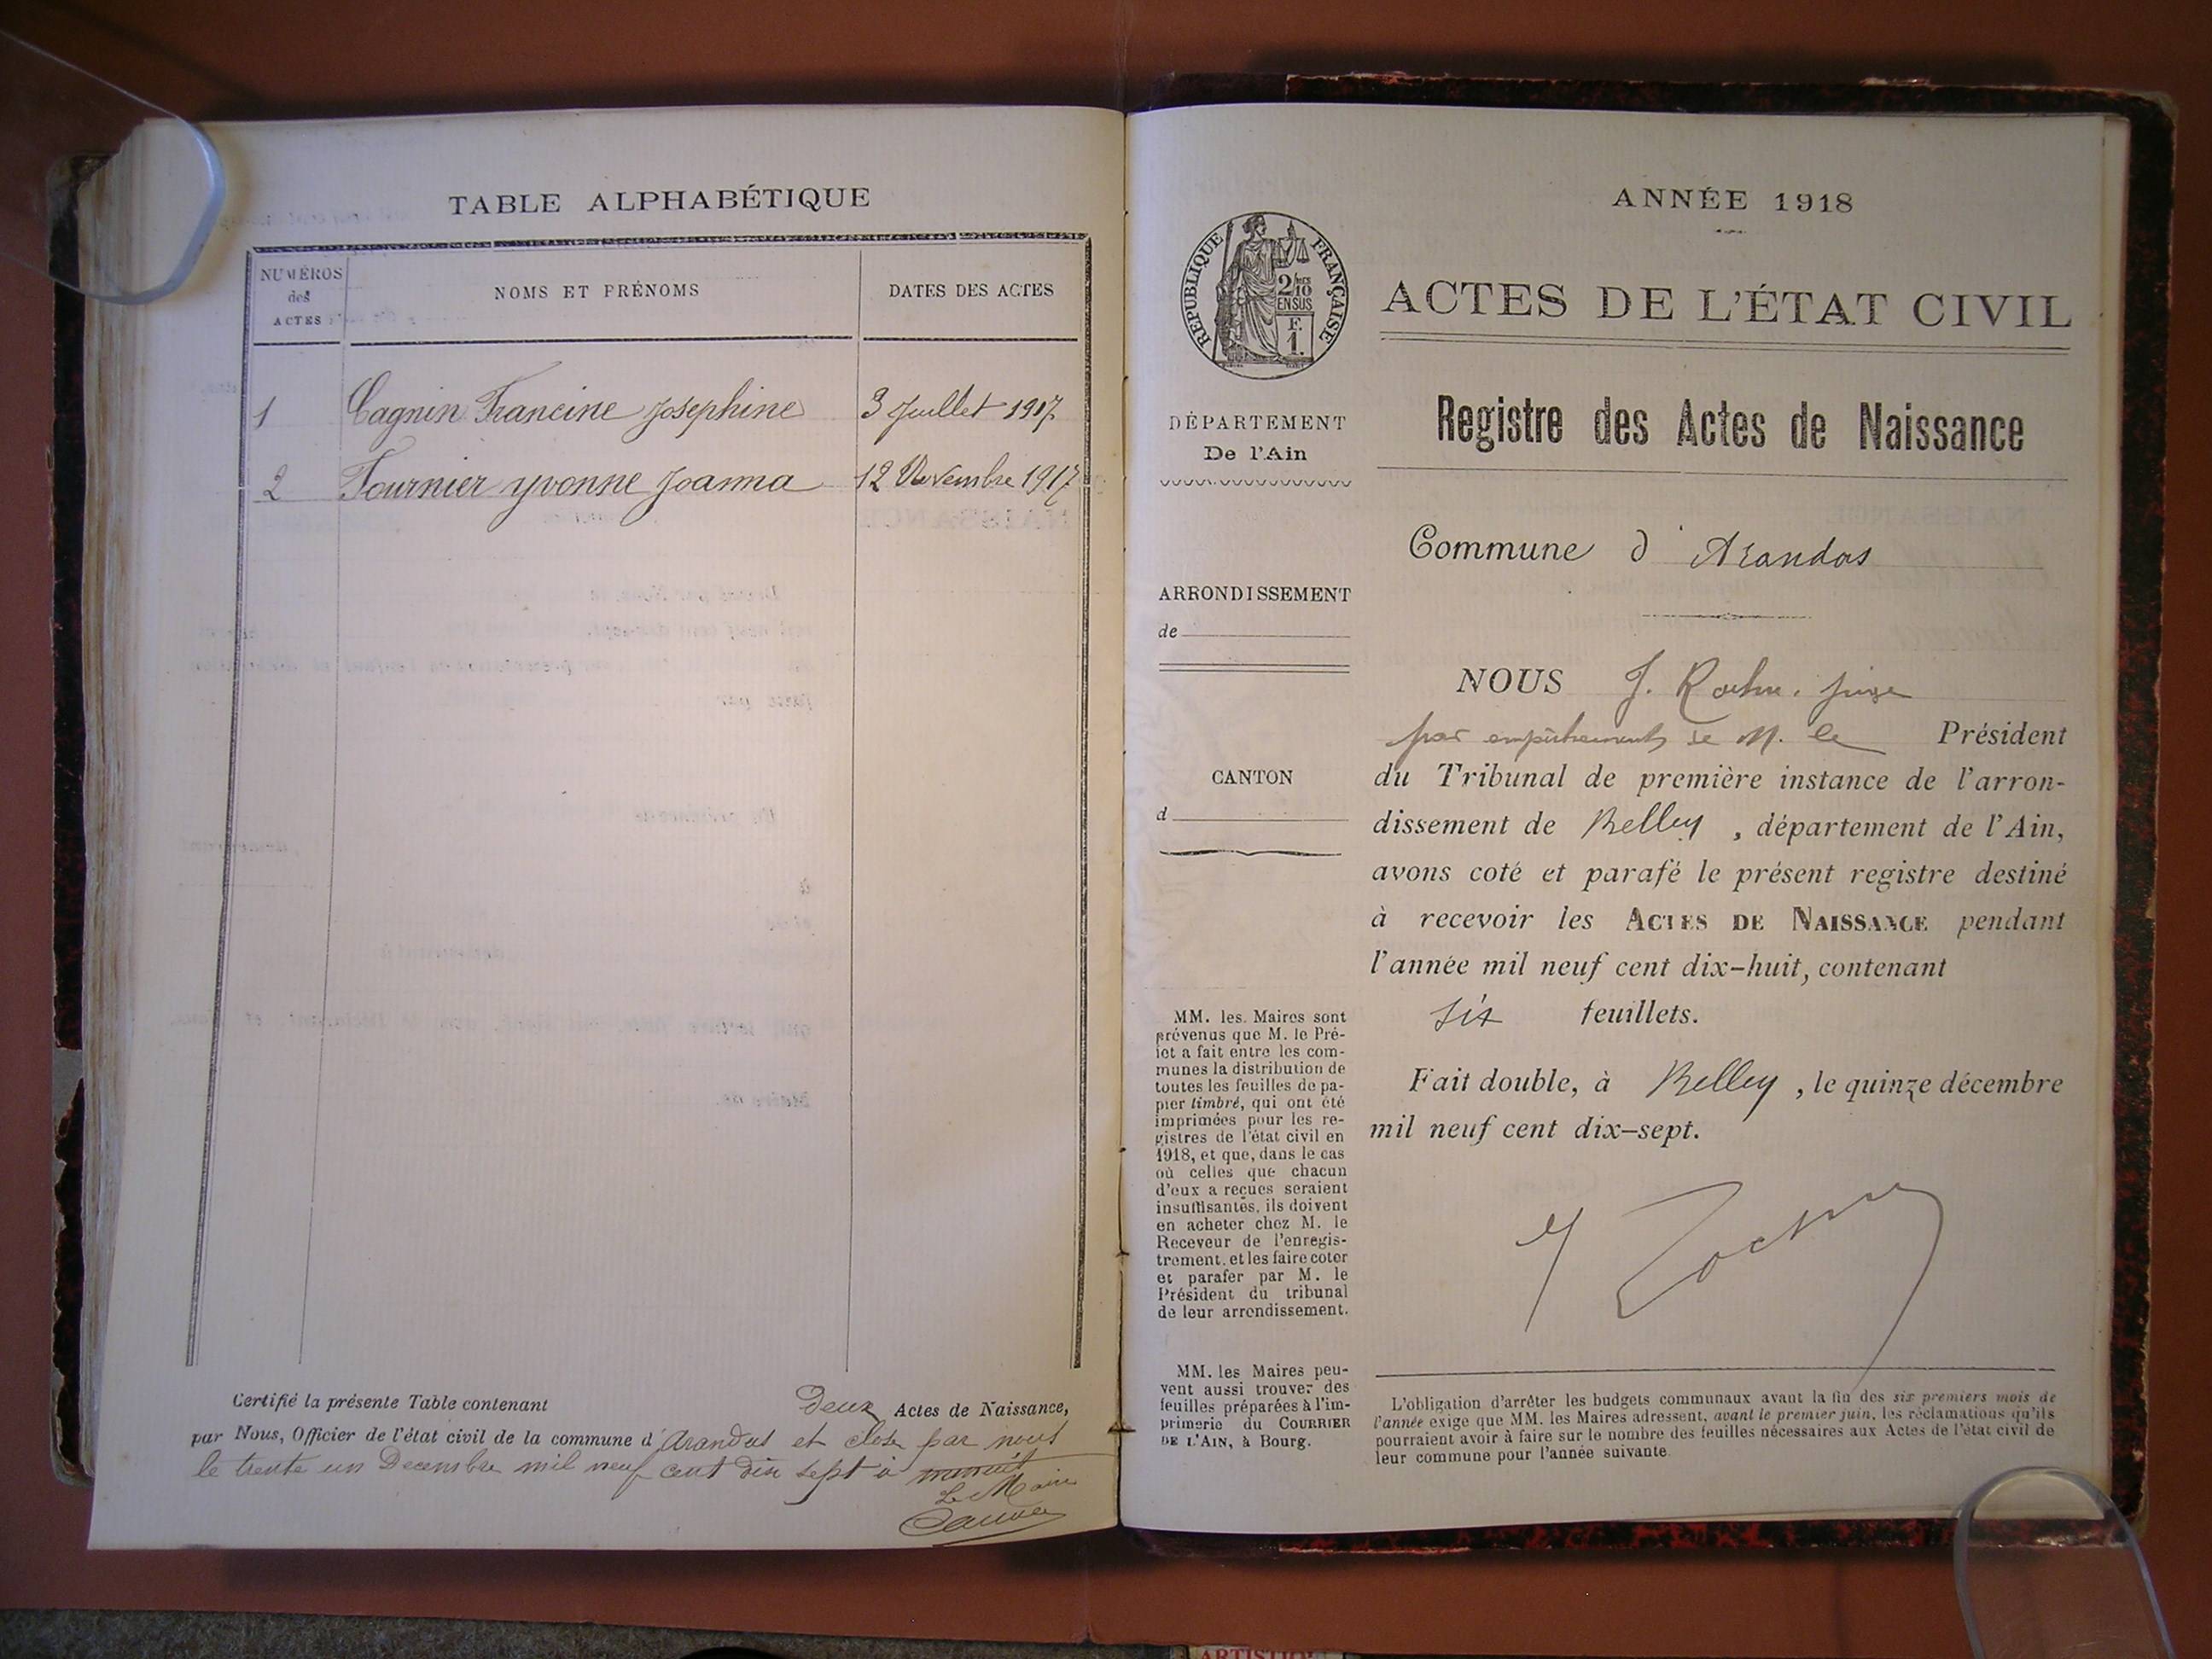 TABLE ALPHABÉTIQUE
NUMÉROS
des
ACTES
NOMS ET PRÉNOMS
DATES DES ACTES
1 Cagnin Francine Joséphine 3 Juillet 1917
2 Fournier Yvonne Joanna 12 Novembre 1917
Certifié la présente Table contenant Deux Actes de Naissance,
par Nous, Officier de l'état civil de la commune d'Arandas et close par nous
le trente un Decembre mil neuf cent dix sept à minuit
Le Maire
ANNÉE 1918
RÉPUBLIQUE FRANÇAISE
2/10
EN SUS
F.
1.
ACTES DE L'ÉTAT CIVIL
DÉPARTEMENT
De l'Ain
Registre des Actes de Naissance
Commune d'Arandas
ARRONDISSEMENT
de
CANTON
d
NOUS J. juge
par empêchement de M. le Président
du Tribunal de première instance de l'arron-
dissement de Belley, département de l'Ain,
avons coté et parafé le présent registre destiné
à recevoir les ACTES DE NAISSANCE pendant
l'année mil neuf cent dix-huit, contenant
six feuillets.
Fait double, à Belley, le quinze décembre
mil neuf cent dix-sept.
MM. les Maires sont
prévenus que M. le Pré-
fet a fait entre les com-
munes la distribution de
toutes les feuilles de pa-
pier timbré, qui ont été
imprimées pour les re-
gistres de l'état civil en
1918, et que, dans le cas
où celles que chacun
d'eux a reçues seraient
insuffisantes, ils doivent
en acheter chez M. le
Receveur de l'enregis-
trement, et les faire coter
et parafer par M. le
Président du tribunal
de leur arrondissement.
MM. les Maires peu-
vent aussi trouver des
feuilles préparées à l'im-
primerie du COURRIER
DE L'AIN, à Bourg.
L'obligation d'arrêter les budgets communaux avant la fin des six premiers mois de
l'année exige que MM. les Maires adressent, avant le premier juin, les réclamations qu'ils
pourraient avoir à faire sur le nombre des feuilles nécessaires aux Actes de l'état civil de
leur commune pour l'année suivante.